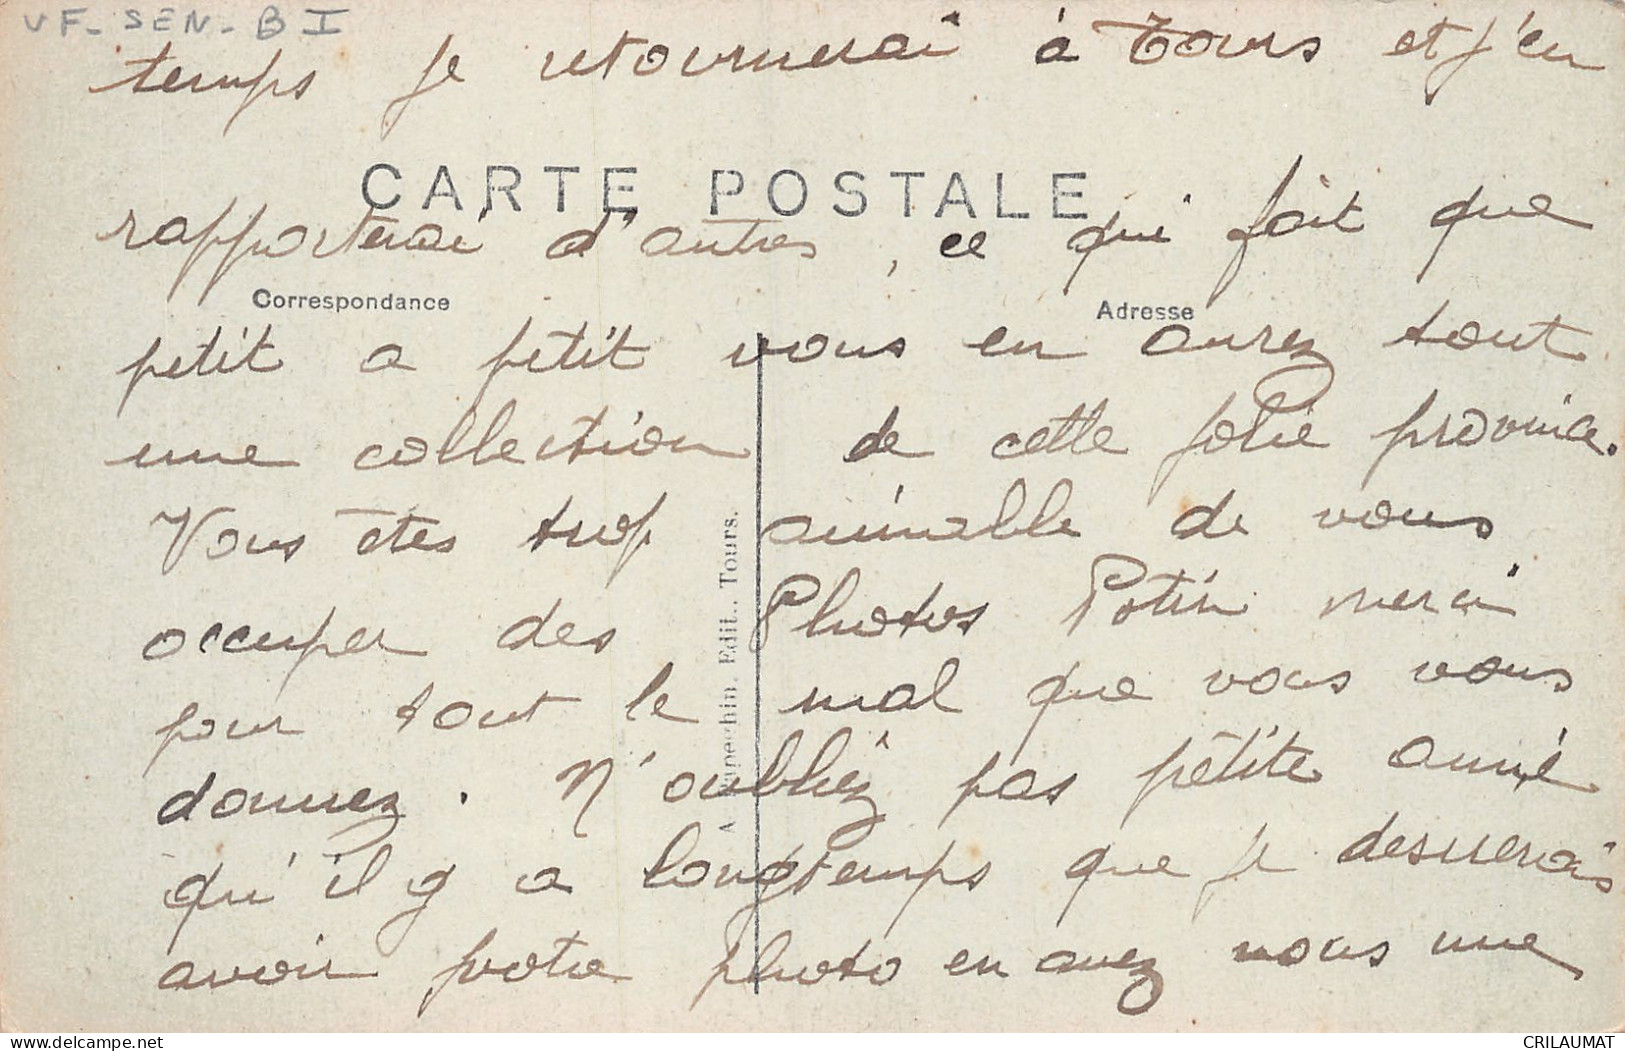 VF - SEN - B I
temps je retournerai à Tours et j'en
CARTE POSTALE
rapporterai d'autres, ce qui fait que
Correspondance
Adresse
petit a petit vous en aurez tout
une collection de cette jolie province.
Vous êtes trop aimable de vous
occuper des Photos Potin merci
pour tout le mal que vous vous
donnez. N'oubliez pas petite amie
qu'il y a longtemps que je desirerais
avoir votre photo en avez vous une
Edit. Tours.
www.delcampe.net
CRILAUMAT